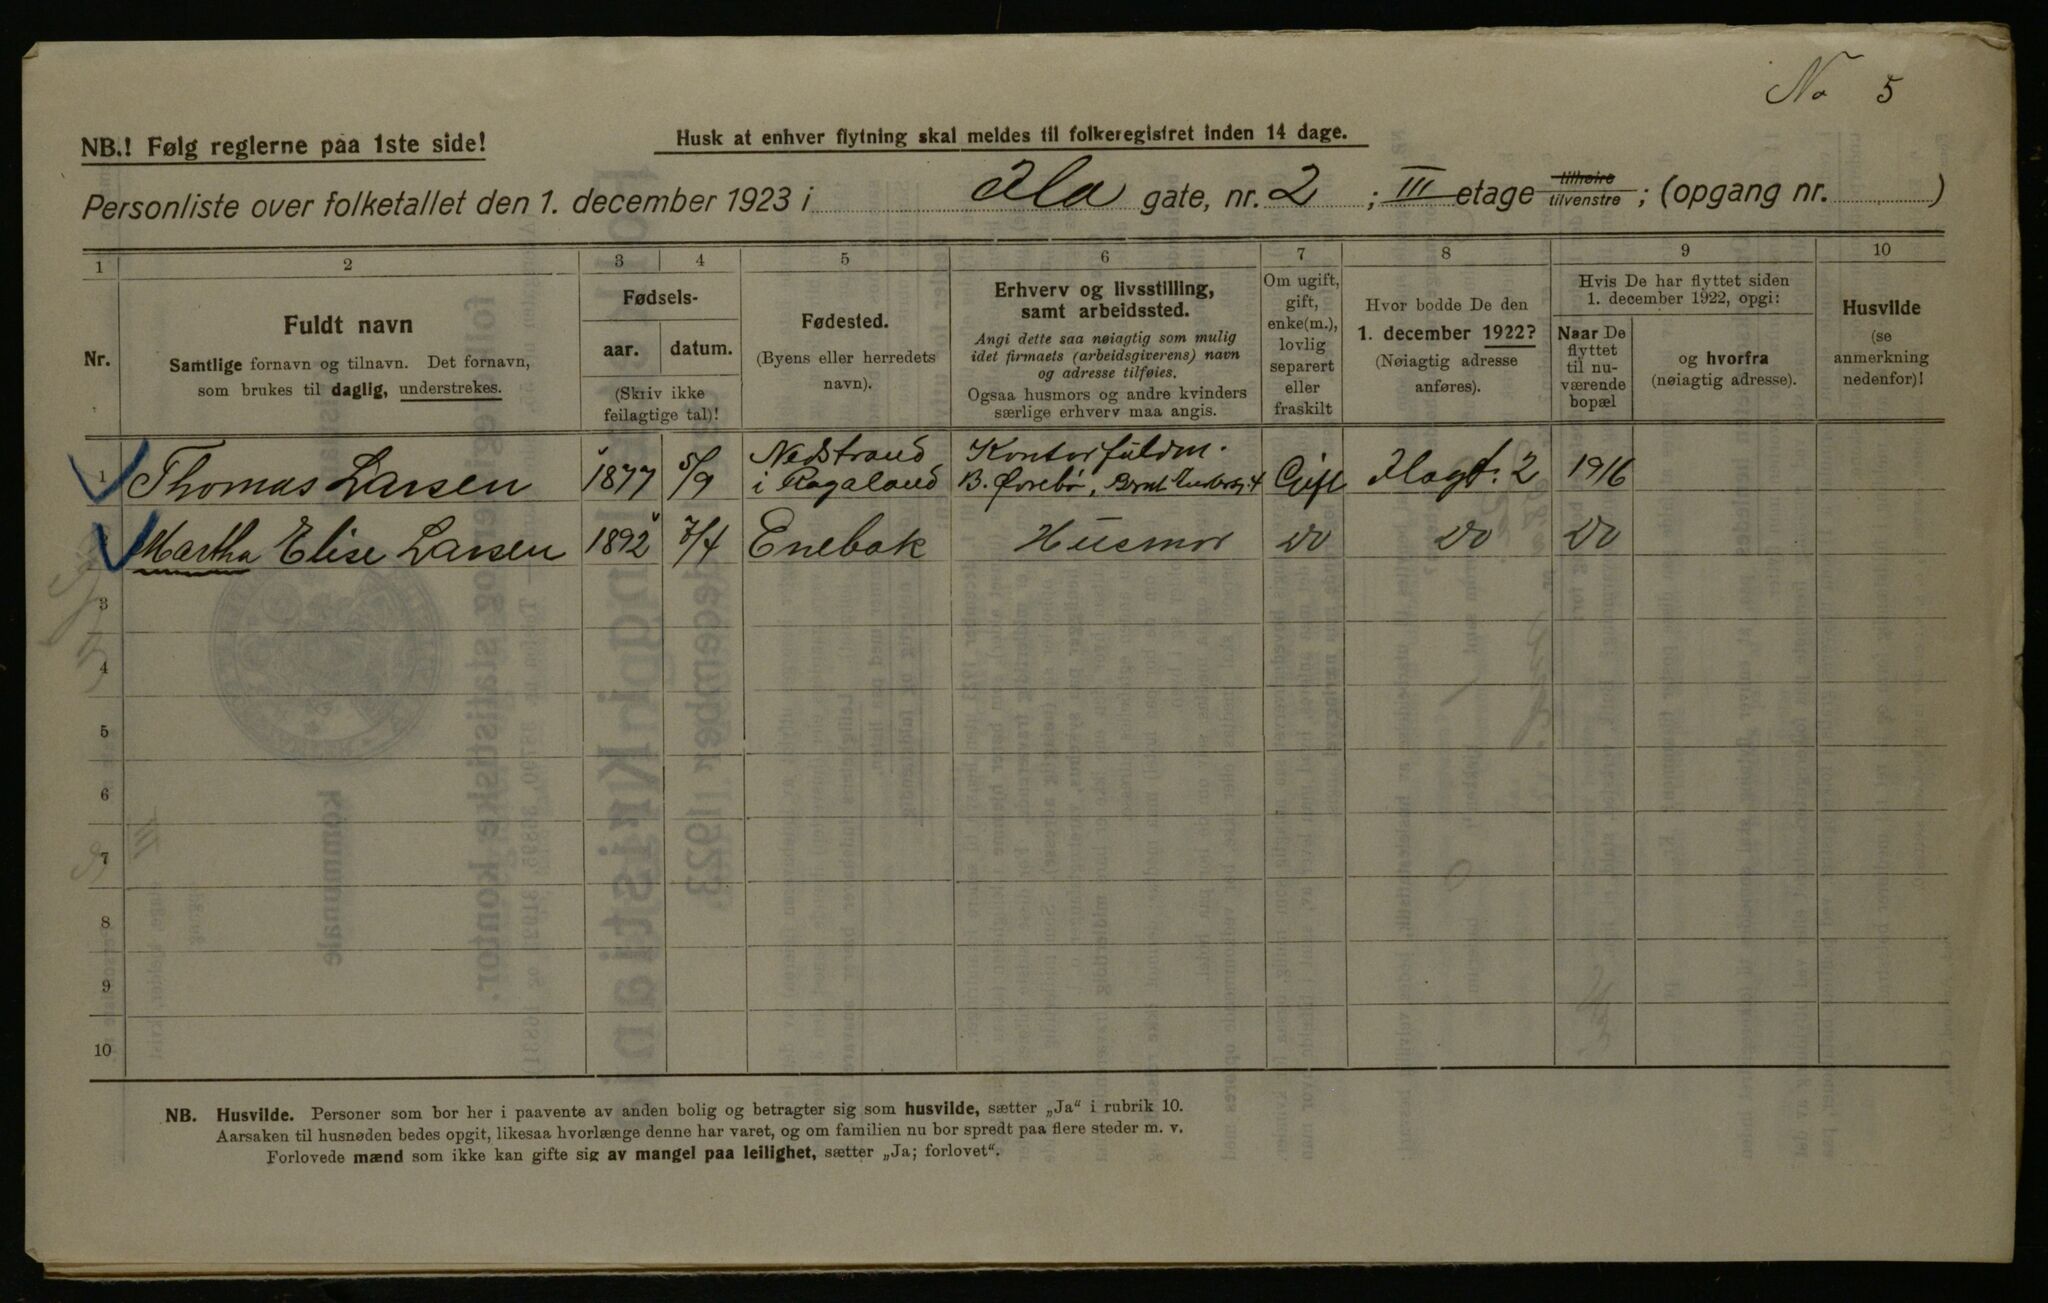 No 5
NB.! Følg reglerne paa 1ste side!
Husk at enhver flytning skal meldes til folkeregistret inden 14 dage.
Personliste over folketallet den 1. december 1923 i Ila gate, nr. 2 ; III etage tilhøire tilvenstre ; (opgang nr. )
1 2 3 4 5 6 7 8 9 10
Nr.
Fuldt navn
Samtlige fornavn og tilnavn. Det fornavn,
som brukes til daglig, understrekes.
Fødsels-
aar. datum.
(Skriv ikke
feilagtige tal)!
Fødested.
(Byens eller herredets
navn).
Erhverv og livsstilling,
samt arbeidssted.
Angi dette saa nøiagtig som mulig
idet firmaets (arbeidsgiverens) navn
og adresse tilføies.
Ogsaa husmors og andre kvinders
særlige erhverv maa angis.
Om ugift,
gift,
enke(m.),
lovlig
separert
eller
fraskilt
Hvor bodde De den
1. december 1922?
(Nøiagtig adresse
anføres).
Hvis De har flyttet siden
1. december 1922, opgi:
Naar De
flyttet
til nu-
værende
bopæl
og hvorfra
(nøiagtig adresse).
Husvilde
(se
anmerkning
nedenfor)!
1 Thomas Larsen 1877 5/9 Nedstrand i Rogaland Kontorfuldm. B. Øvrebø, Gift Ilagt. 2 1916
Martha Elise Larsen 1892 7/4 Enebak Husmor do do do
3
4
5
6
7
8
9
10
NB. Husvilde. Personer som bor her i paavente av anden bolig og betragter sig som husvilde, sætter „Ja“ i rubrik 10.
Aarsaken til husnøden bedes opgit, likesaa hvorlænge denne har varet, og om familien nu bor spredt paa flere steder m. v.
Forlovede mænd som ikke kan gifte sig av mangel paa leilighet, sætter „Ja; forlovet“.